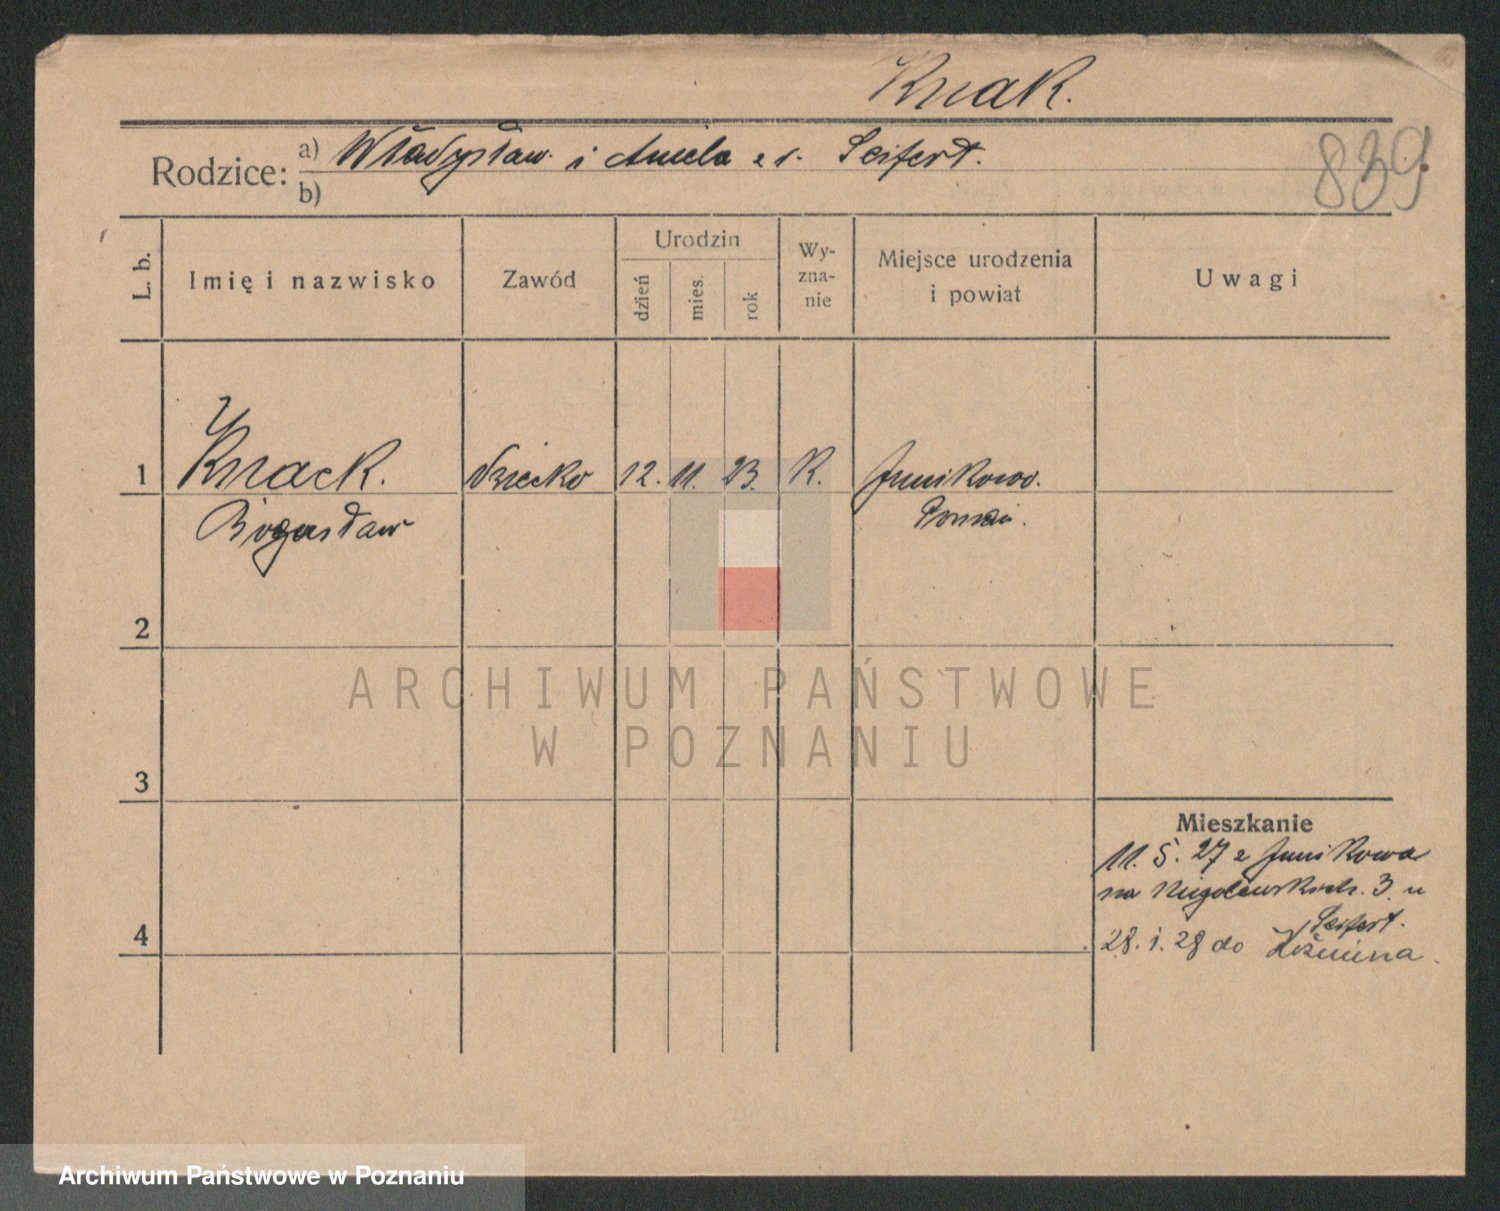 Knak.
Rodzice: a) Władysław i Aniela z d. Seifert.
b)
839
L. b.
Imię i nazwisko
Zawód
Urodzin
dzień
mies.
rok
Wy-
zna-
nie
Miejsce urodzenia
i powiat
Uwagi
1 Knack. dziecko 12. 11. 23. K. Junikowo.
Bogusław
2
ARCHIWUM PAŃSTWOWE
W POZNANIU
3
Mieszkanie
11. 5. 27 z Junikowa
na 3 u
Seifert.
4
28. 1. 28 do Koźmina.
Archiwum Państwowe w Poznaniu